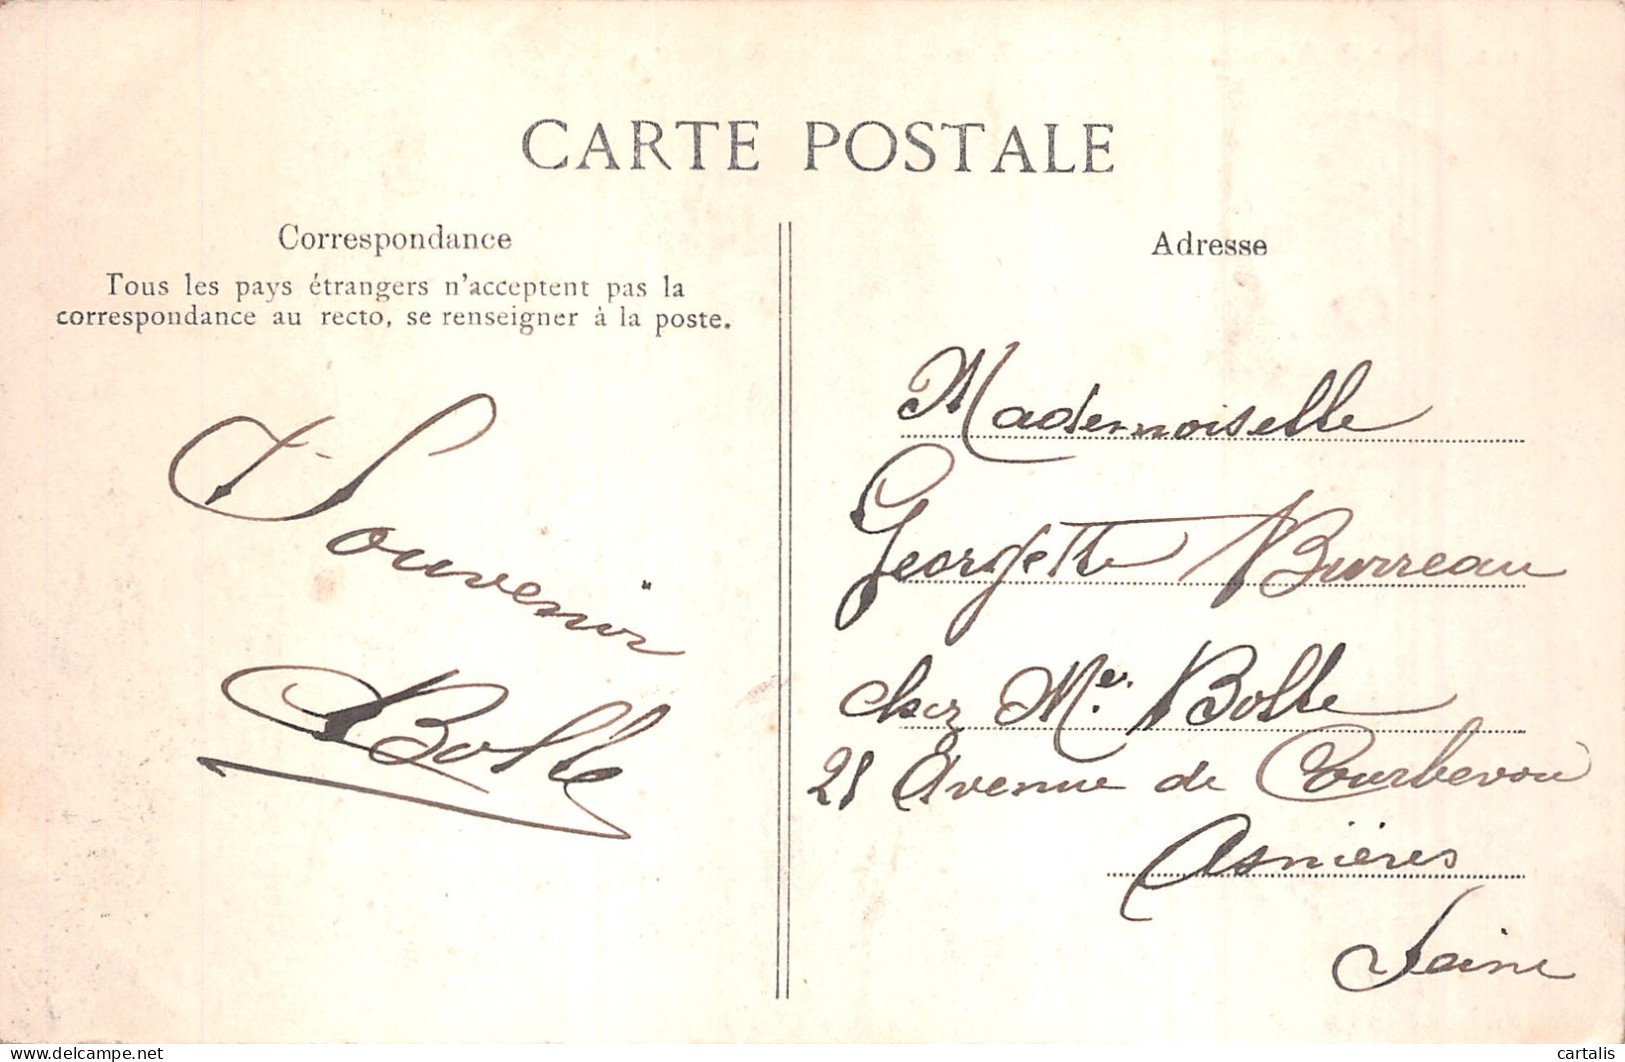 CARTE POSTALE
Correspondance
Tous les pays étrangers n'acceptent pas la
correspondance au recto, se renseigner à la poste.
Souvenir
Bolle
Adresse
Mademoiselle
Georgette Burreau
chez Me. Bolle
21 Avenue de Courbevoie
Asnières
Seine
delcampe.net
cartalis